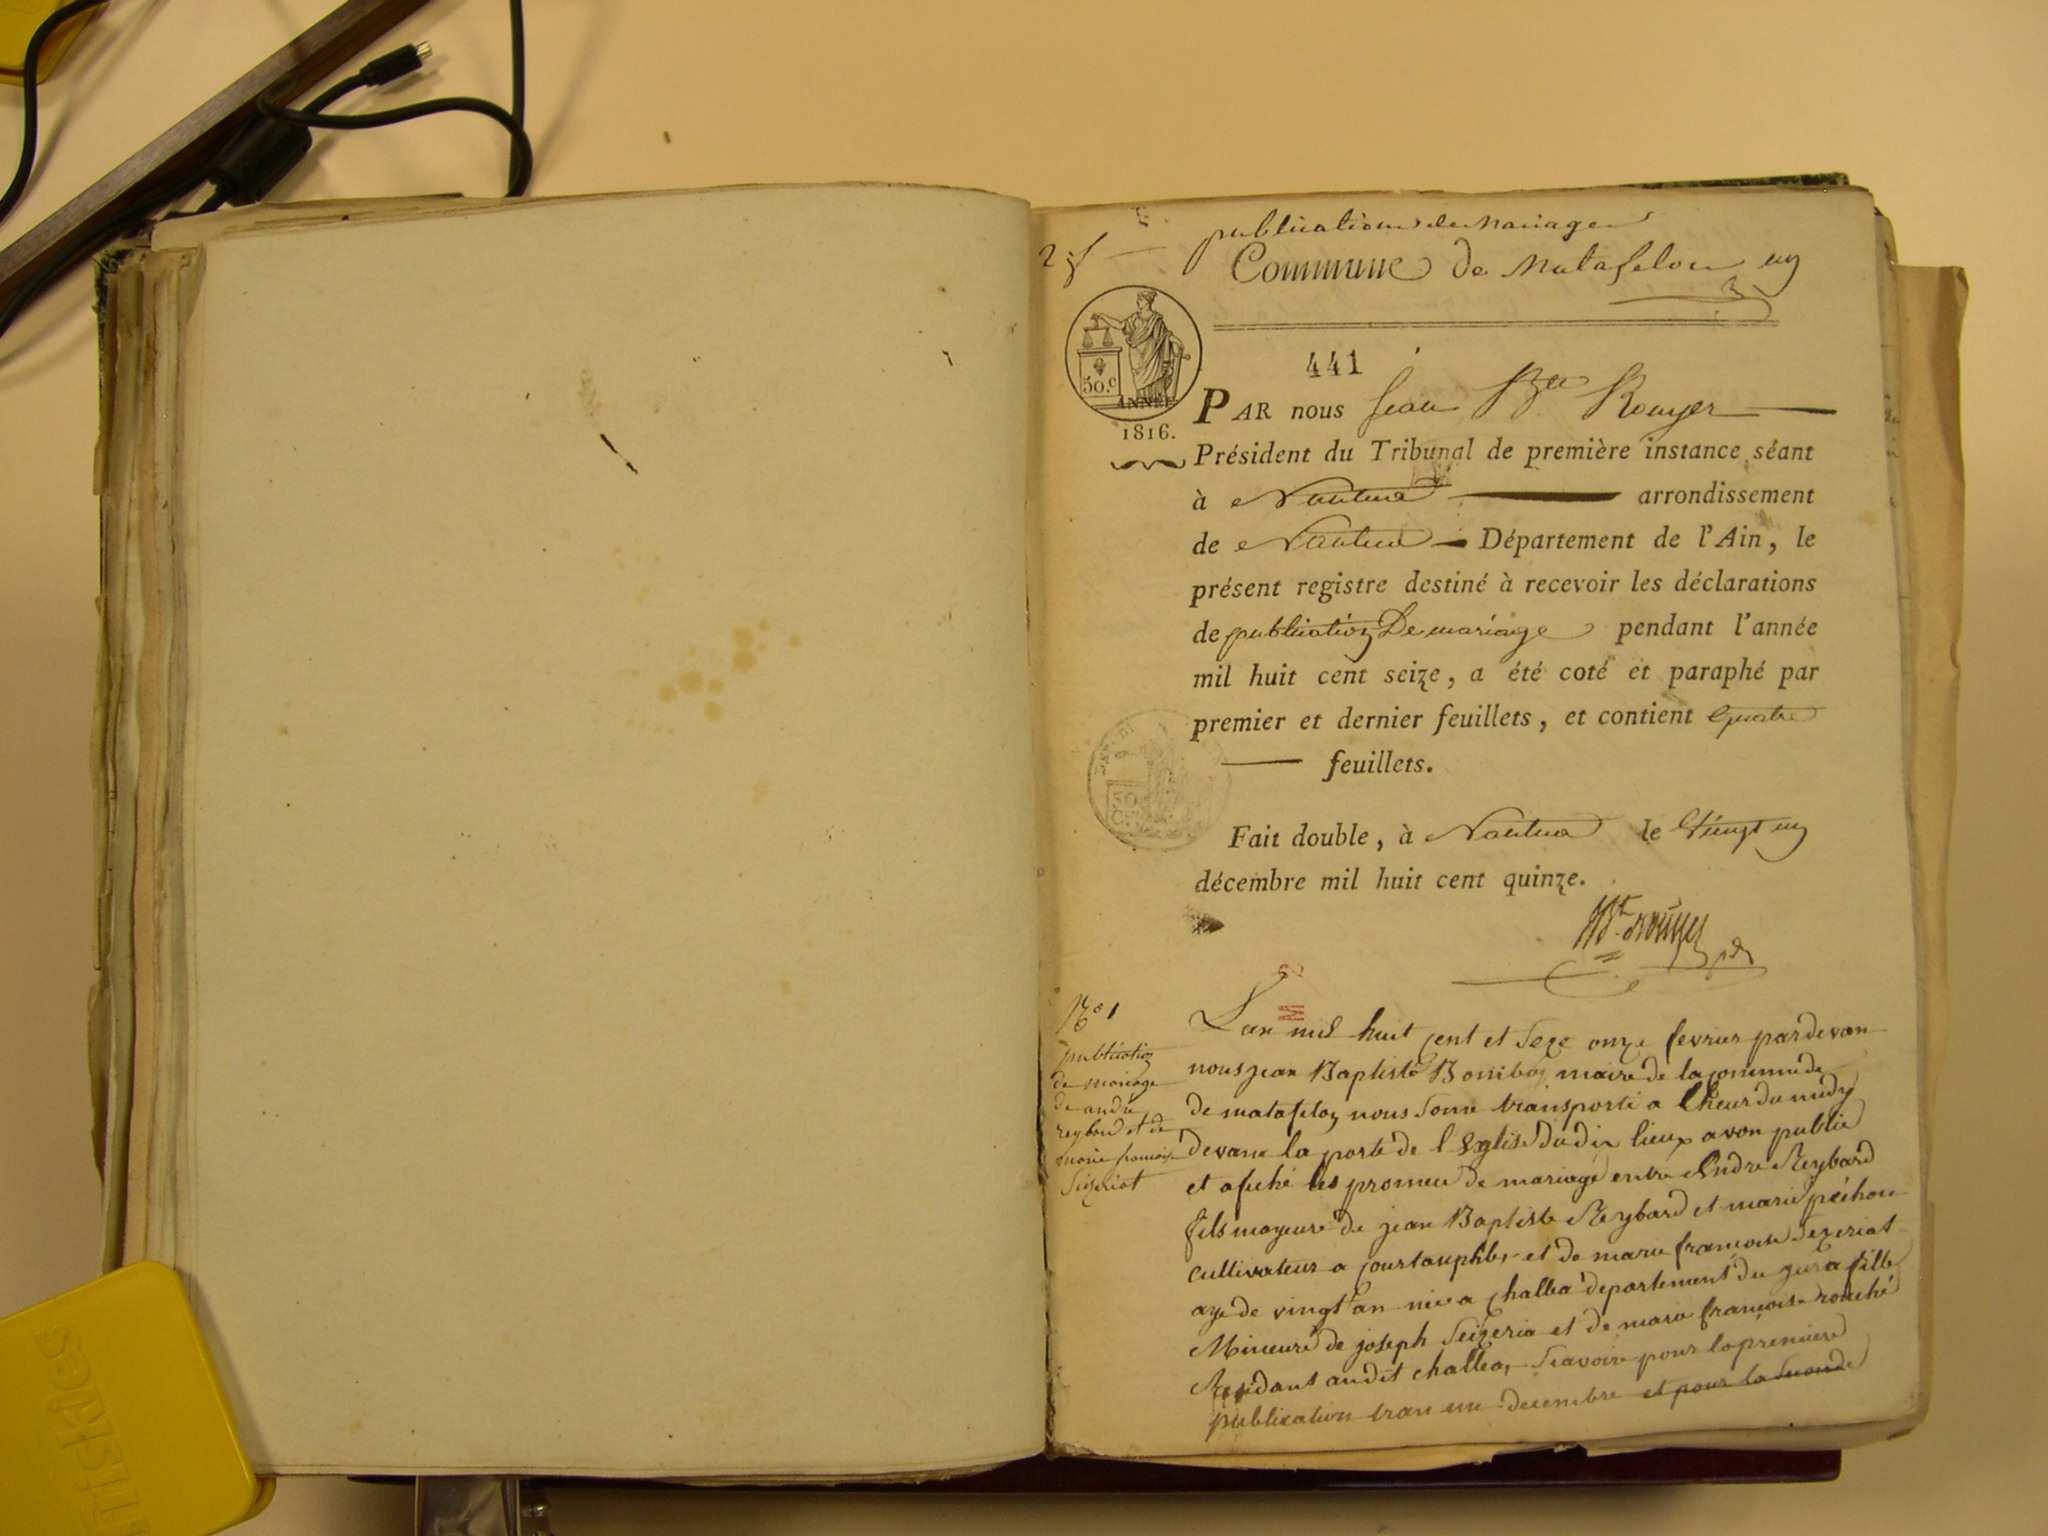 publication de mariage
Commune de Matafelon un
50.c
ANNÉE
1816.
441
PAR nous Jean Bte Rouyer
Président du Tribunal de première instance séant
à Nantua arrondissement
de Nantua Département de l'Ain, le
présent registre destiné à recevoir les déclarations
de publication De mariage pendant l'année
mil huit cent seize, a été coté et paraphé par
premier et dernier feuillets, et contient quatre
feuillets.
50
C.
Fait double, à Nantua le Vingt un
décembre mil huit cent quinze.
Bt. Rouyer
No 1
publication
de mariage
de andre
reybard et de
marie francoise
Seizeriat
L'an mil huit cent et Seze onze fevrier pardevan
nous jean Baptiste maire de la commude
de matafelon nous Some transporté a lheur du midy
devant la porte de l Eglise du dix lieux avon publie
et afiché les promeu de mariage entre Andre Reybard
fils mayeure de jean Baptiste Reybard et marie
cultivateur a et de marie françoise Sezeriat
aye de vingt an née a challea departement du gura fille
Mineure de joseph Seizeria et de marie francoise rouché
Residant audit challea, Scavoire pour la premiere
publication tran un decembre et pour la Seconde
TUSKIES